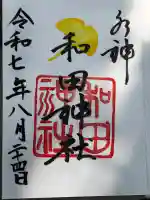 水神
和田神社
和田
神社
令和七年八月二十四日